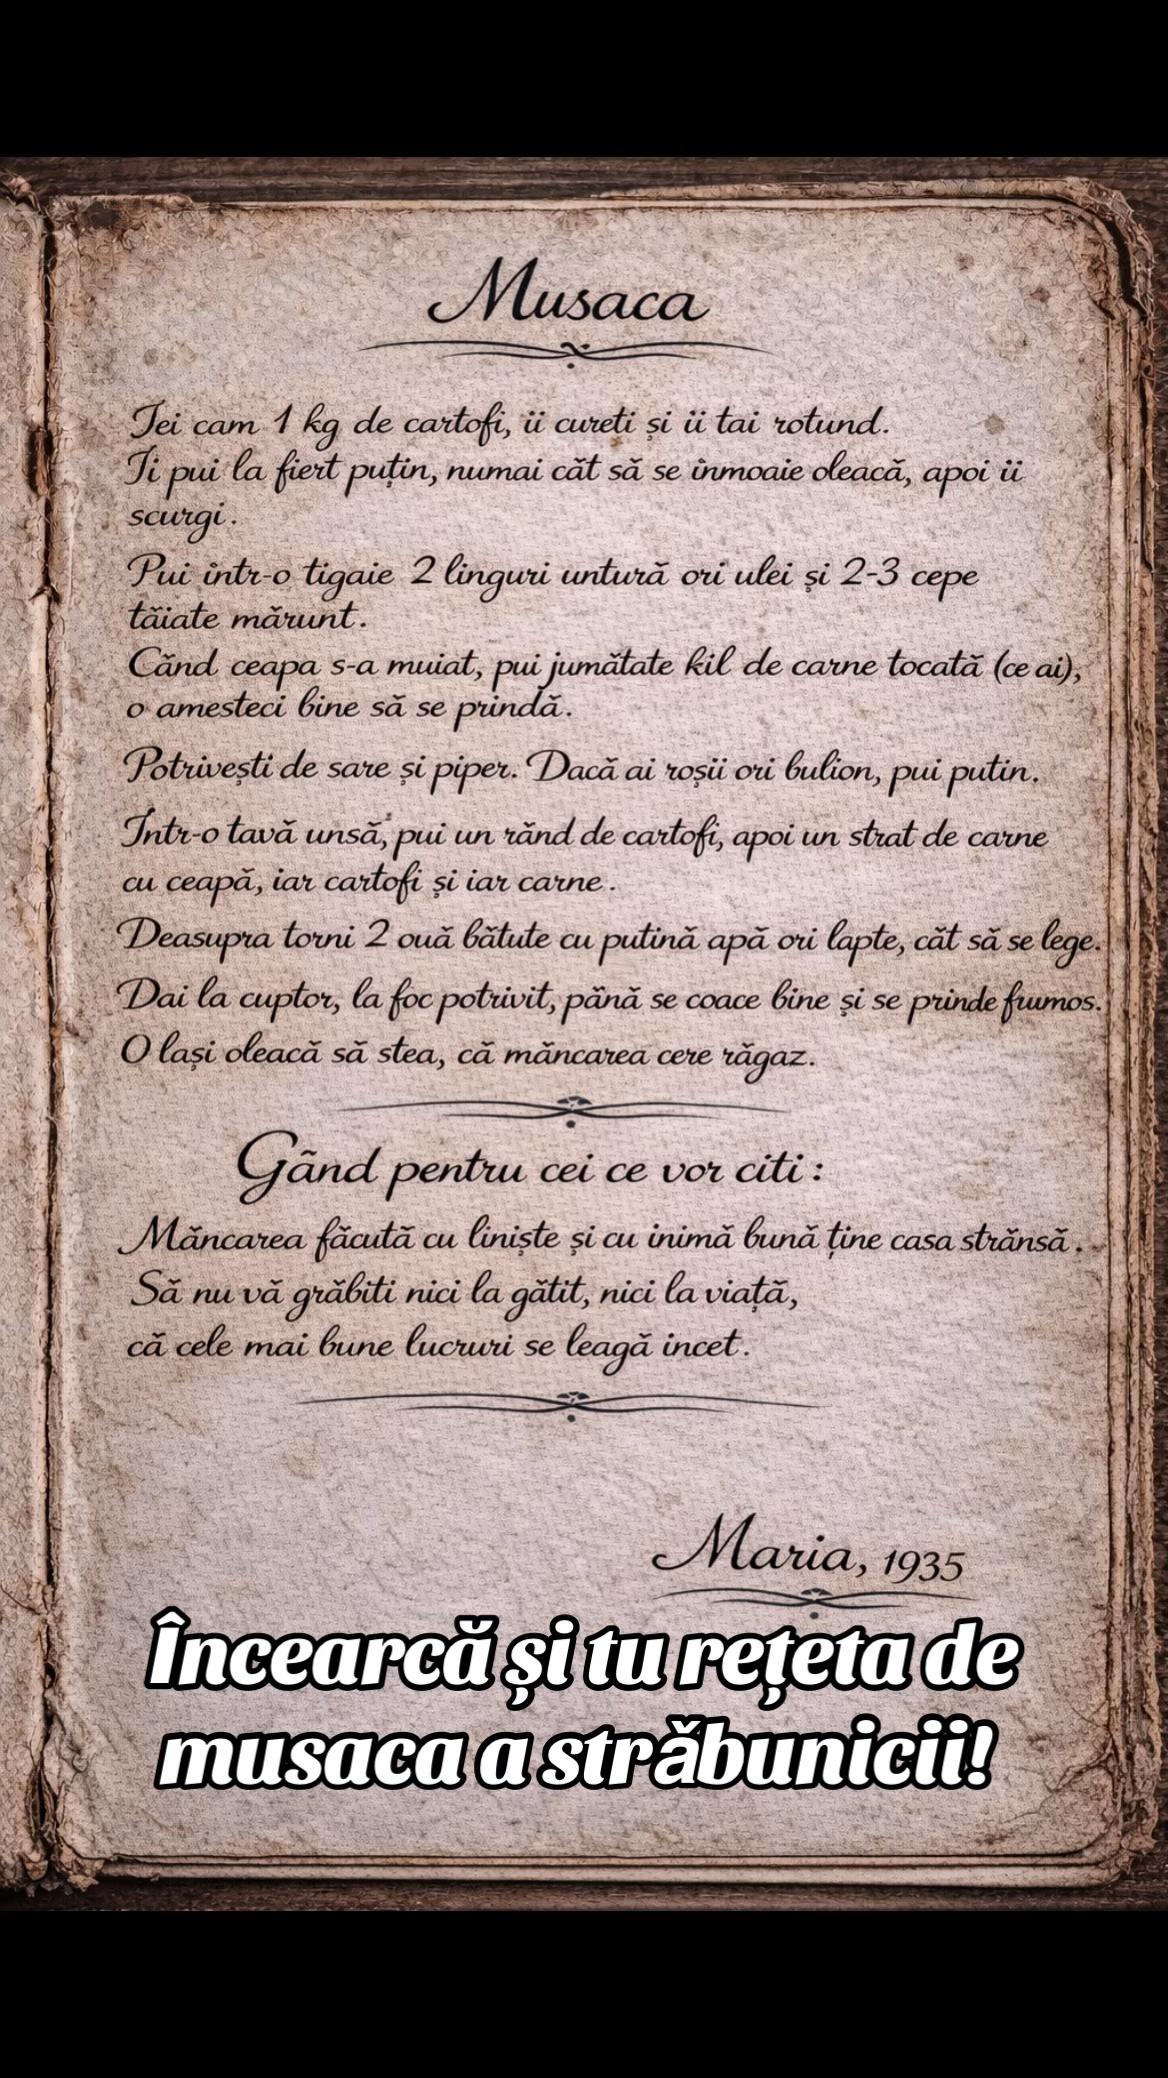 Musaca
Iei cam 1 kg de cartofi, ii cureti și ii tai rotund.
Ii pui la fiert puțin, numai căt să se înmoaie oleacă, apoi ii
scurgi.
Pui intr-o tigaie 2 linguri untură ori ulei și 2-3 cepe
tăiate mărunt.
Cănd ceapa s-a muiat, pui jumătate kil de carne tocată (ce ai),
o amesteci bine să se prindă.
Potrivești de sare și piper. Dacă ai roșii ori bulion, pui putin.
Într-o tavă unsă, pui un rănd de cartofi, apoi un strat de carne
cu ceapă, iar cartofi și iar carne.
Deasupra torni 2 ouă bătute cu putină apă ori lapte, căt să se lege.
Dai la cuptor, la foc potrivit, pănă se coace bine și se prinde frumos.
O lași oleacă să stea, că măncarea cere răgaz.
Gãnd pentru cei ce vor citi:
Măncarea făcută cu liniște și cu inimă bună ține casa strănsă.
Să nu vă grăbiti nici la gătit, nici la viață,
că cele mai bune lucruri se leagă incet.
Maria, 1935
Încearcă și tu rețeta de
musaca a străbunicii!